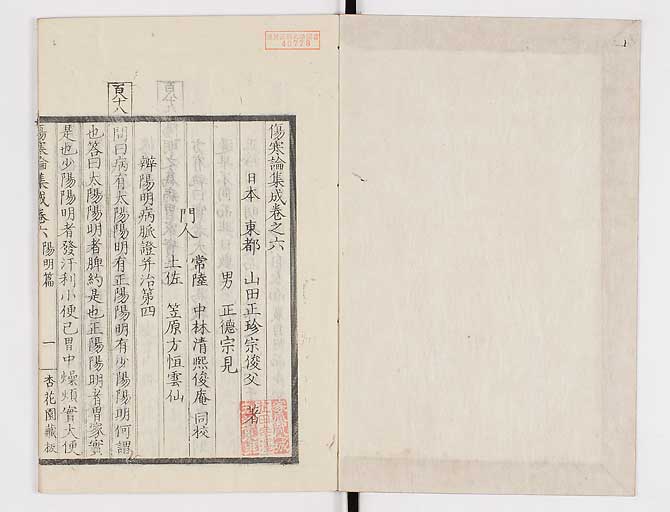 傷寒論集成卷之六
日本 東都 山田正珍宗俊父 著
男 正德宗見
門人 常陸 中林清熙俊庵 同校
土佐 笠原方恒雲仙
辨陽明病脈證并治第四
百十八
問曰病有太陽陽明有正陽陽明有少陽陽明何謂
也答曰太陽陽明者脾約是也正陽陽明者胃家實
是也少陽陽明者發汗利小便已胃中燥煩實大便
傷寒論集成卷六 陽明篇 一 杏花園藏板
40778